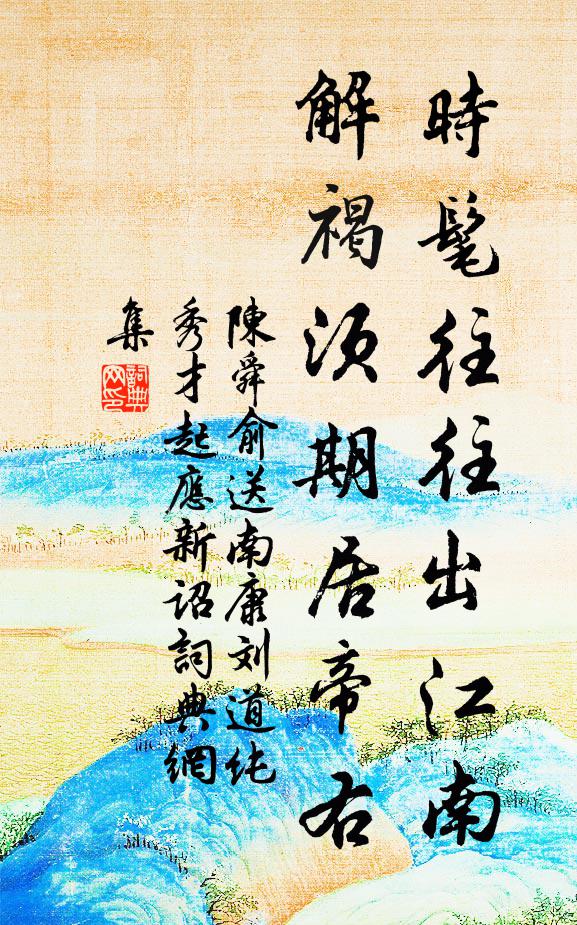 時髦往往出江南
解褐須期居帝右
陳舜俞送南康刘道纯
秀才起應新詔詞典網
集
詞典
网印